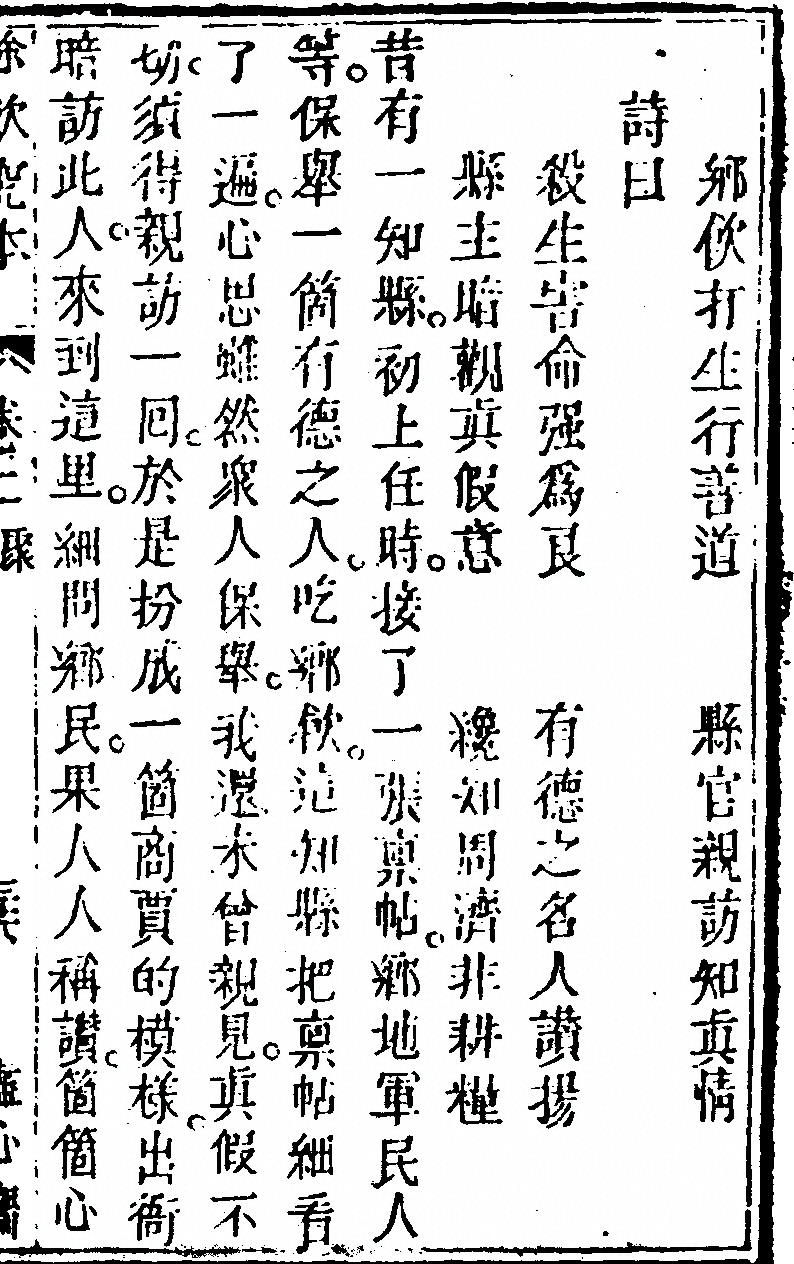 鄉飲打生行善道　縣官親訪知真情
詩曰
殺生害命强爲艮　有德之名人讚揚
縣主暗觀真假意　纔知周濟非耕糧
昔有一知縣。初上任時。接了一張稟帖。鄉地軍民人
等。保舉一箇有德之人。吃鄉飲。這知縣把稟帖細看
了一遍。心思雖然衆人保舉。我還未曾親見。真假不
切。須得親訪一回。於是扮成一箇商賈的模樣。出衙
暗訪此人。來到這里。細問鄉民。果人人稱讚。箇箇心